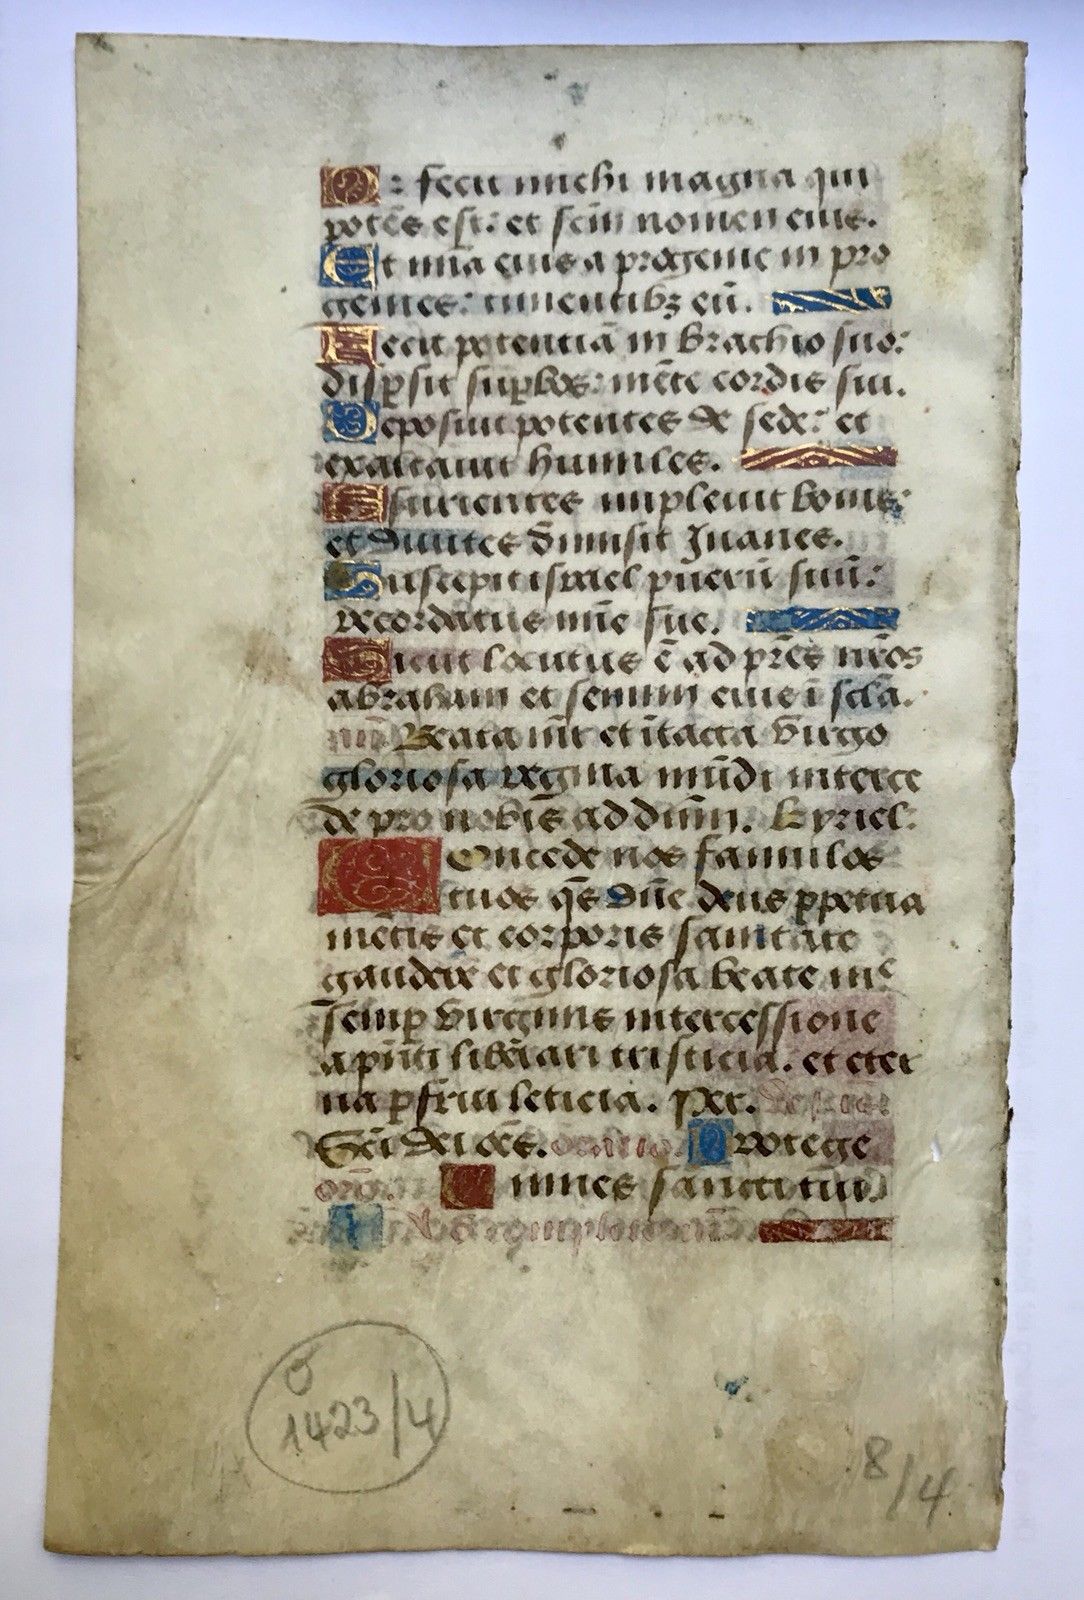 Q: fecit michi magna qui
potēs est: et scm̄ nomen eius.
Et mīa eius a progenie in pro
genies: timentibꝫ eū.
Fecit potentiā in brachio suo:
dispsit supbos: mēte cordis sui.
Deposuit potentes de sede: et
exaltauit humiles.
Esurientes impleuit bonis:
et diuites dimisit Inanes.
Suscepit israel puerū suū:
recordatus mīe sue.
Sicut locutus ē ad prēs nr̄os
abraham et semini eius ī scl̄a.
Beata et ītacta virgo
gloriosa regina mūdi interce
de pro nobis ad dnm̄. kyriel:
Concede nos famulos
tuos qs dn̄e deus ꝑpetua
mētis et corporis sanitate
gaudere et gloriosa beate m
semꝑ virginis intercessione
a pn̄ti liberari tristicia. et eter
na ꝑfrui leticia. Per.
Scī dei oēs. oratio. Protege
Omnes sancti tui.
8/4
1423/4